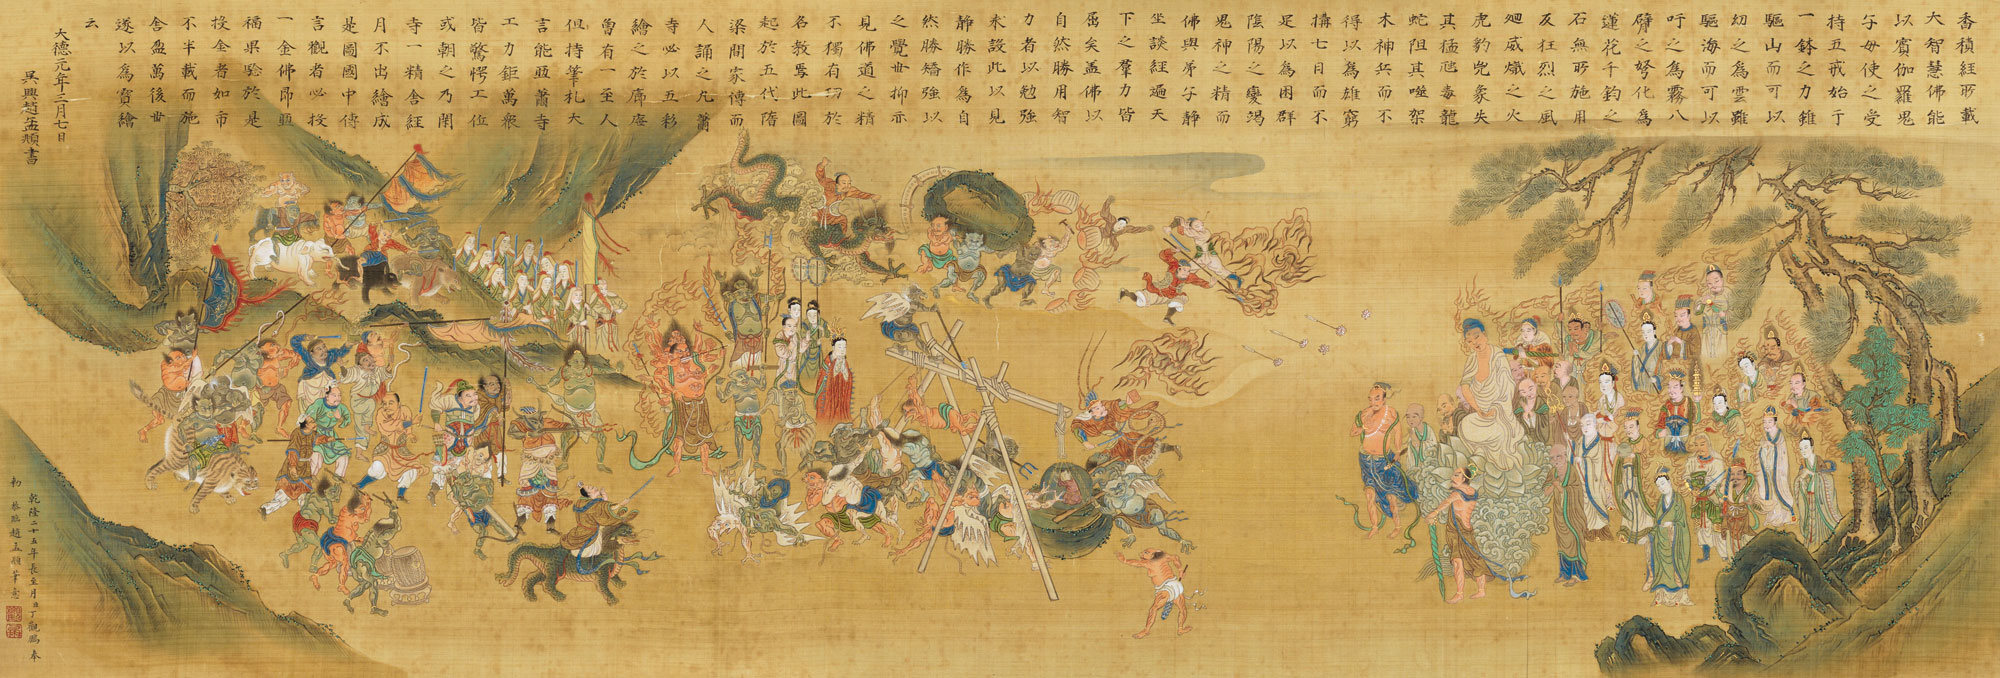 香積經所載
大智慧佛能
以賓伽羅鬼
子母使之受
持五戒始于
一鉢之力錐
驅山而可以
紉之為雲雖
驅海而可以
吁之為霧八
臂之弩化為
蓮花千鈞之
石無所施用
及狂烈之風
廻威熾之火
虎豹兕象失
其猛虺毒龍
蛇阻其噬架
木神兵而不
得以為雄窮
搆七日而不
足以為困群
陰陽之變竭
鬼神之精而
佛與弟子靜
坐談經遍天
下之羣力皆
屈矣盖佛以
自然勝用智
力者以勉強
求設此以見
靜勝作為自
然勝矯強以
之覺世抑示
見佛道之精
不獨有功於
名教焉此圖
起於五代隋
梁間家傳而
人誦之凡蕭
寺必以五彩
繪之於廊廡
曾有一至人
但持筆札大
言能甌蕭寺
工力鉅萬衆
皆驚愕工位
或朝之乃閉
寺一精舍經
月不出繪成
是圖國中傳
言觀者必投
一金佛昂甌
福果驗於是
投金者如市
不半載而施
舍盈萬後世
遂以為寶繪
云
大德元年三月七日
吳興趙孟頫書
乾隆二十五年長至月日丁觀鵬奉
勅恭臨趙孟頫筆意